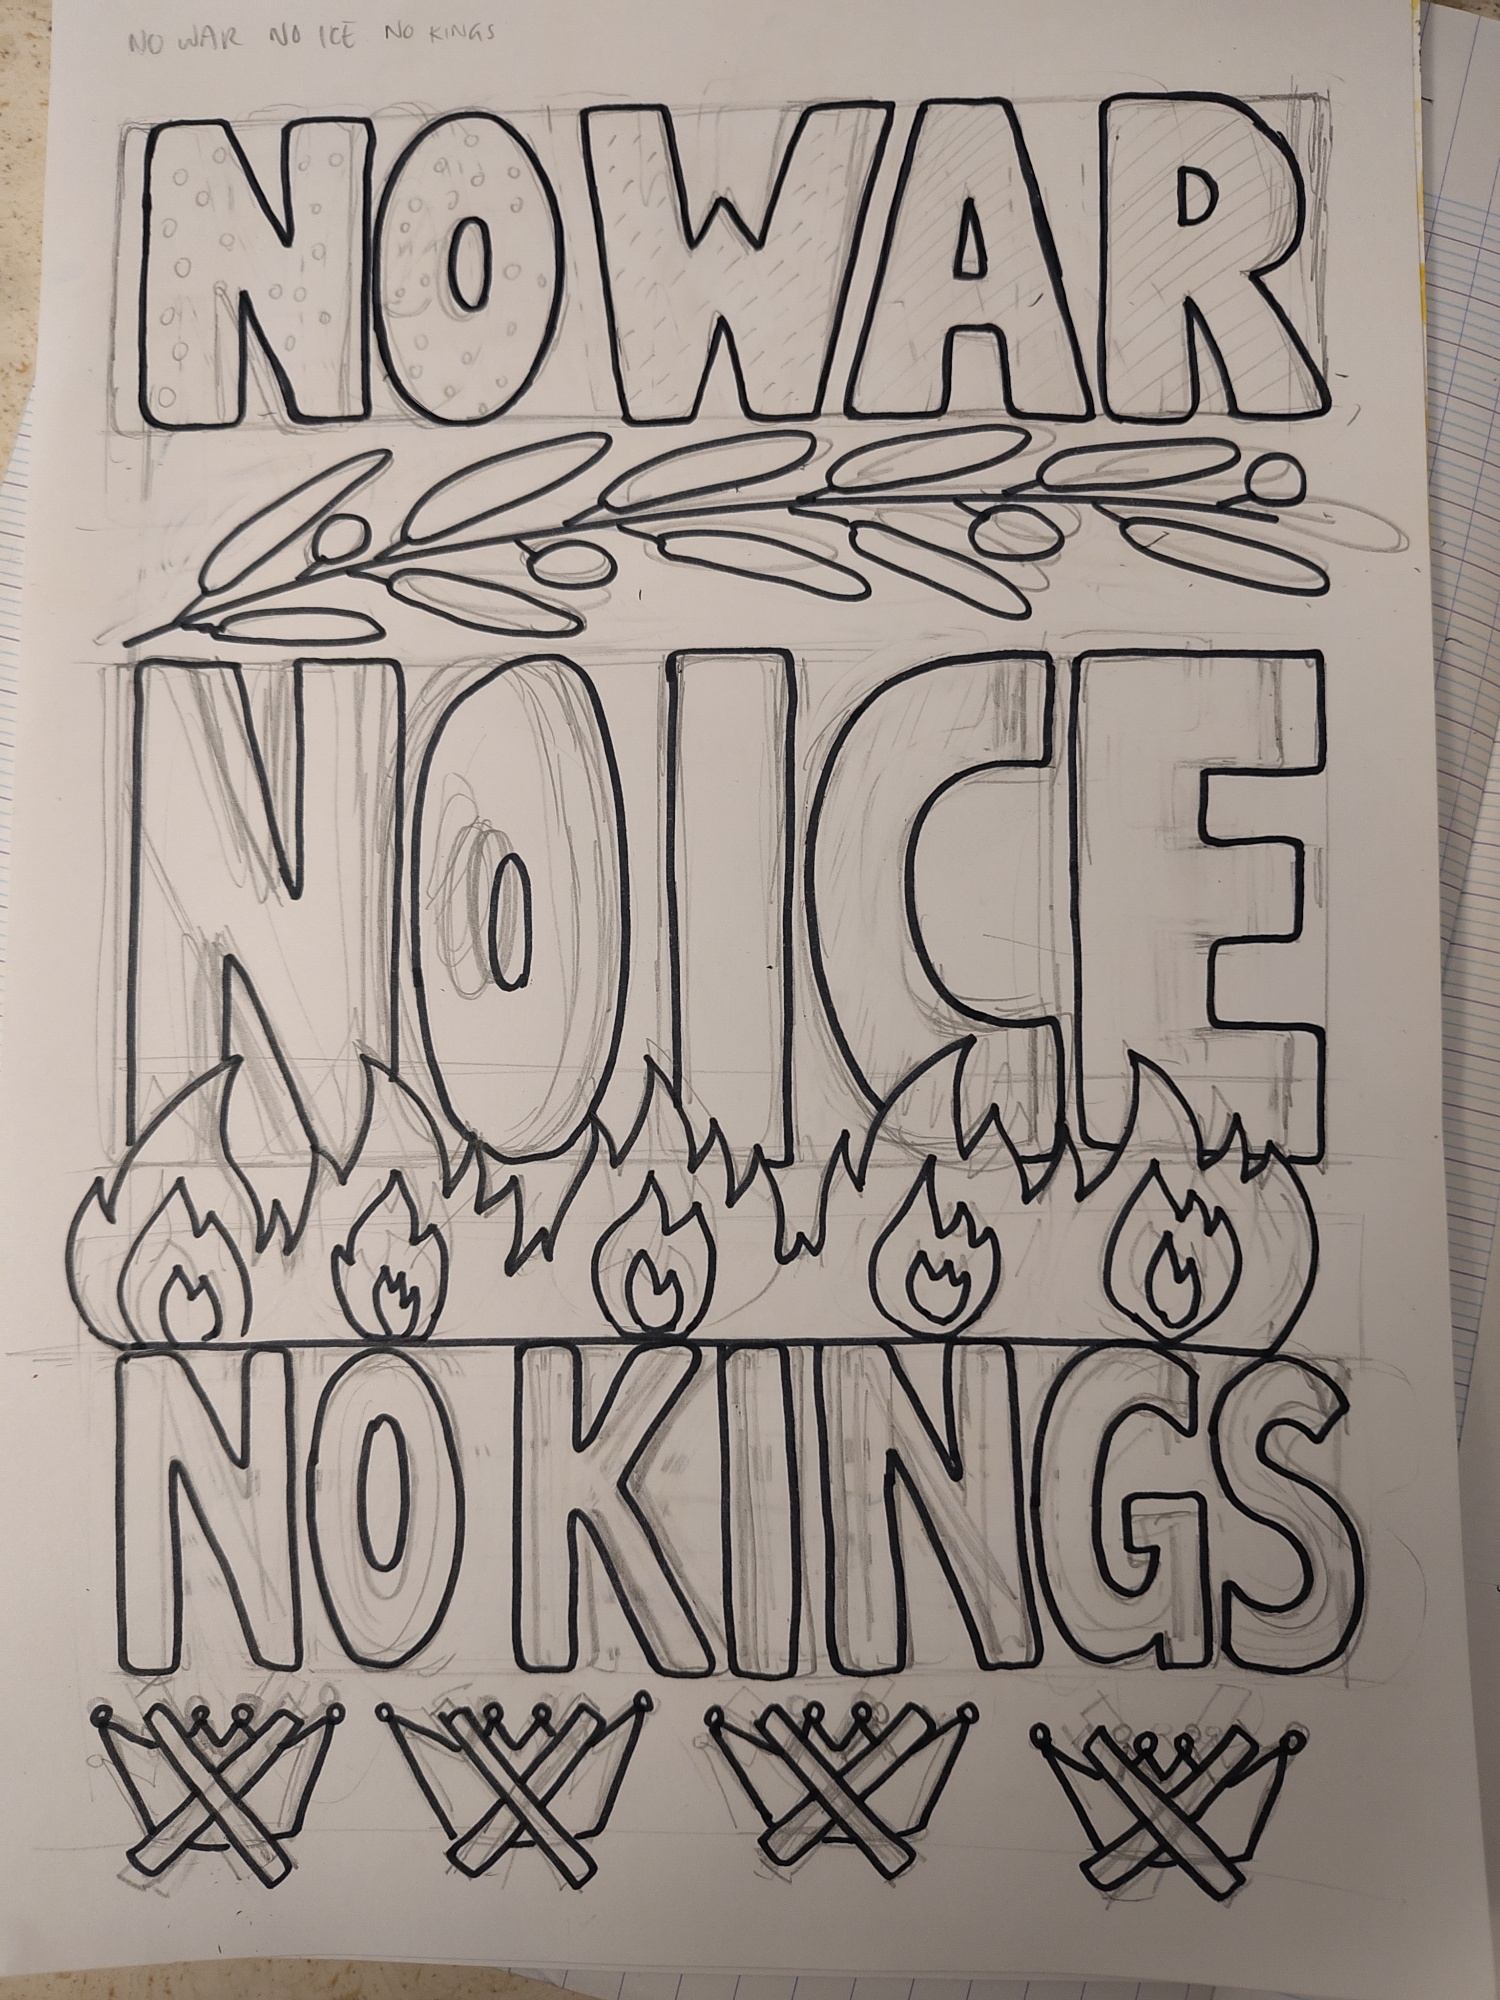 NO WAR NO ICE NO KINGS
NO WAR
NO ICE
NO KINGS